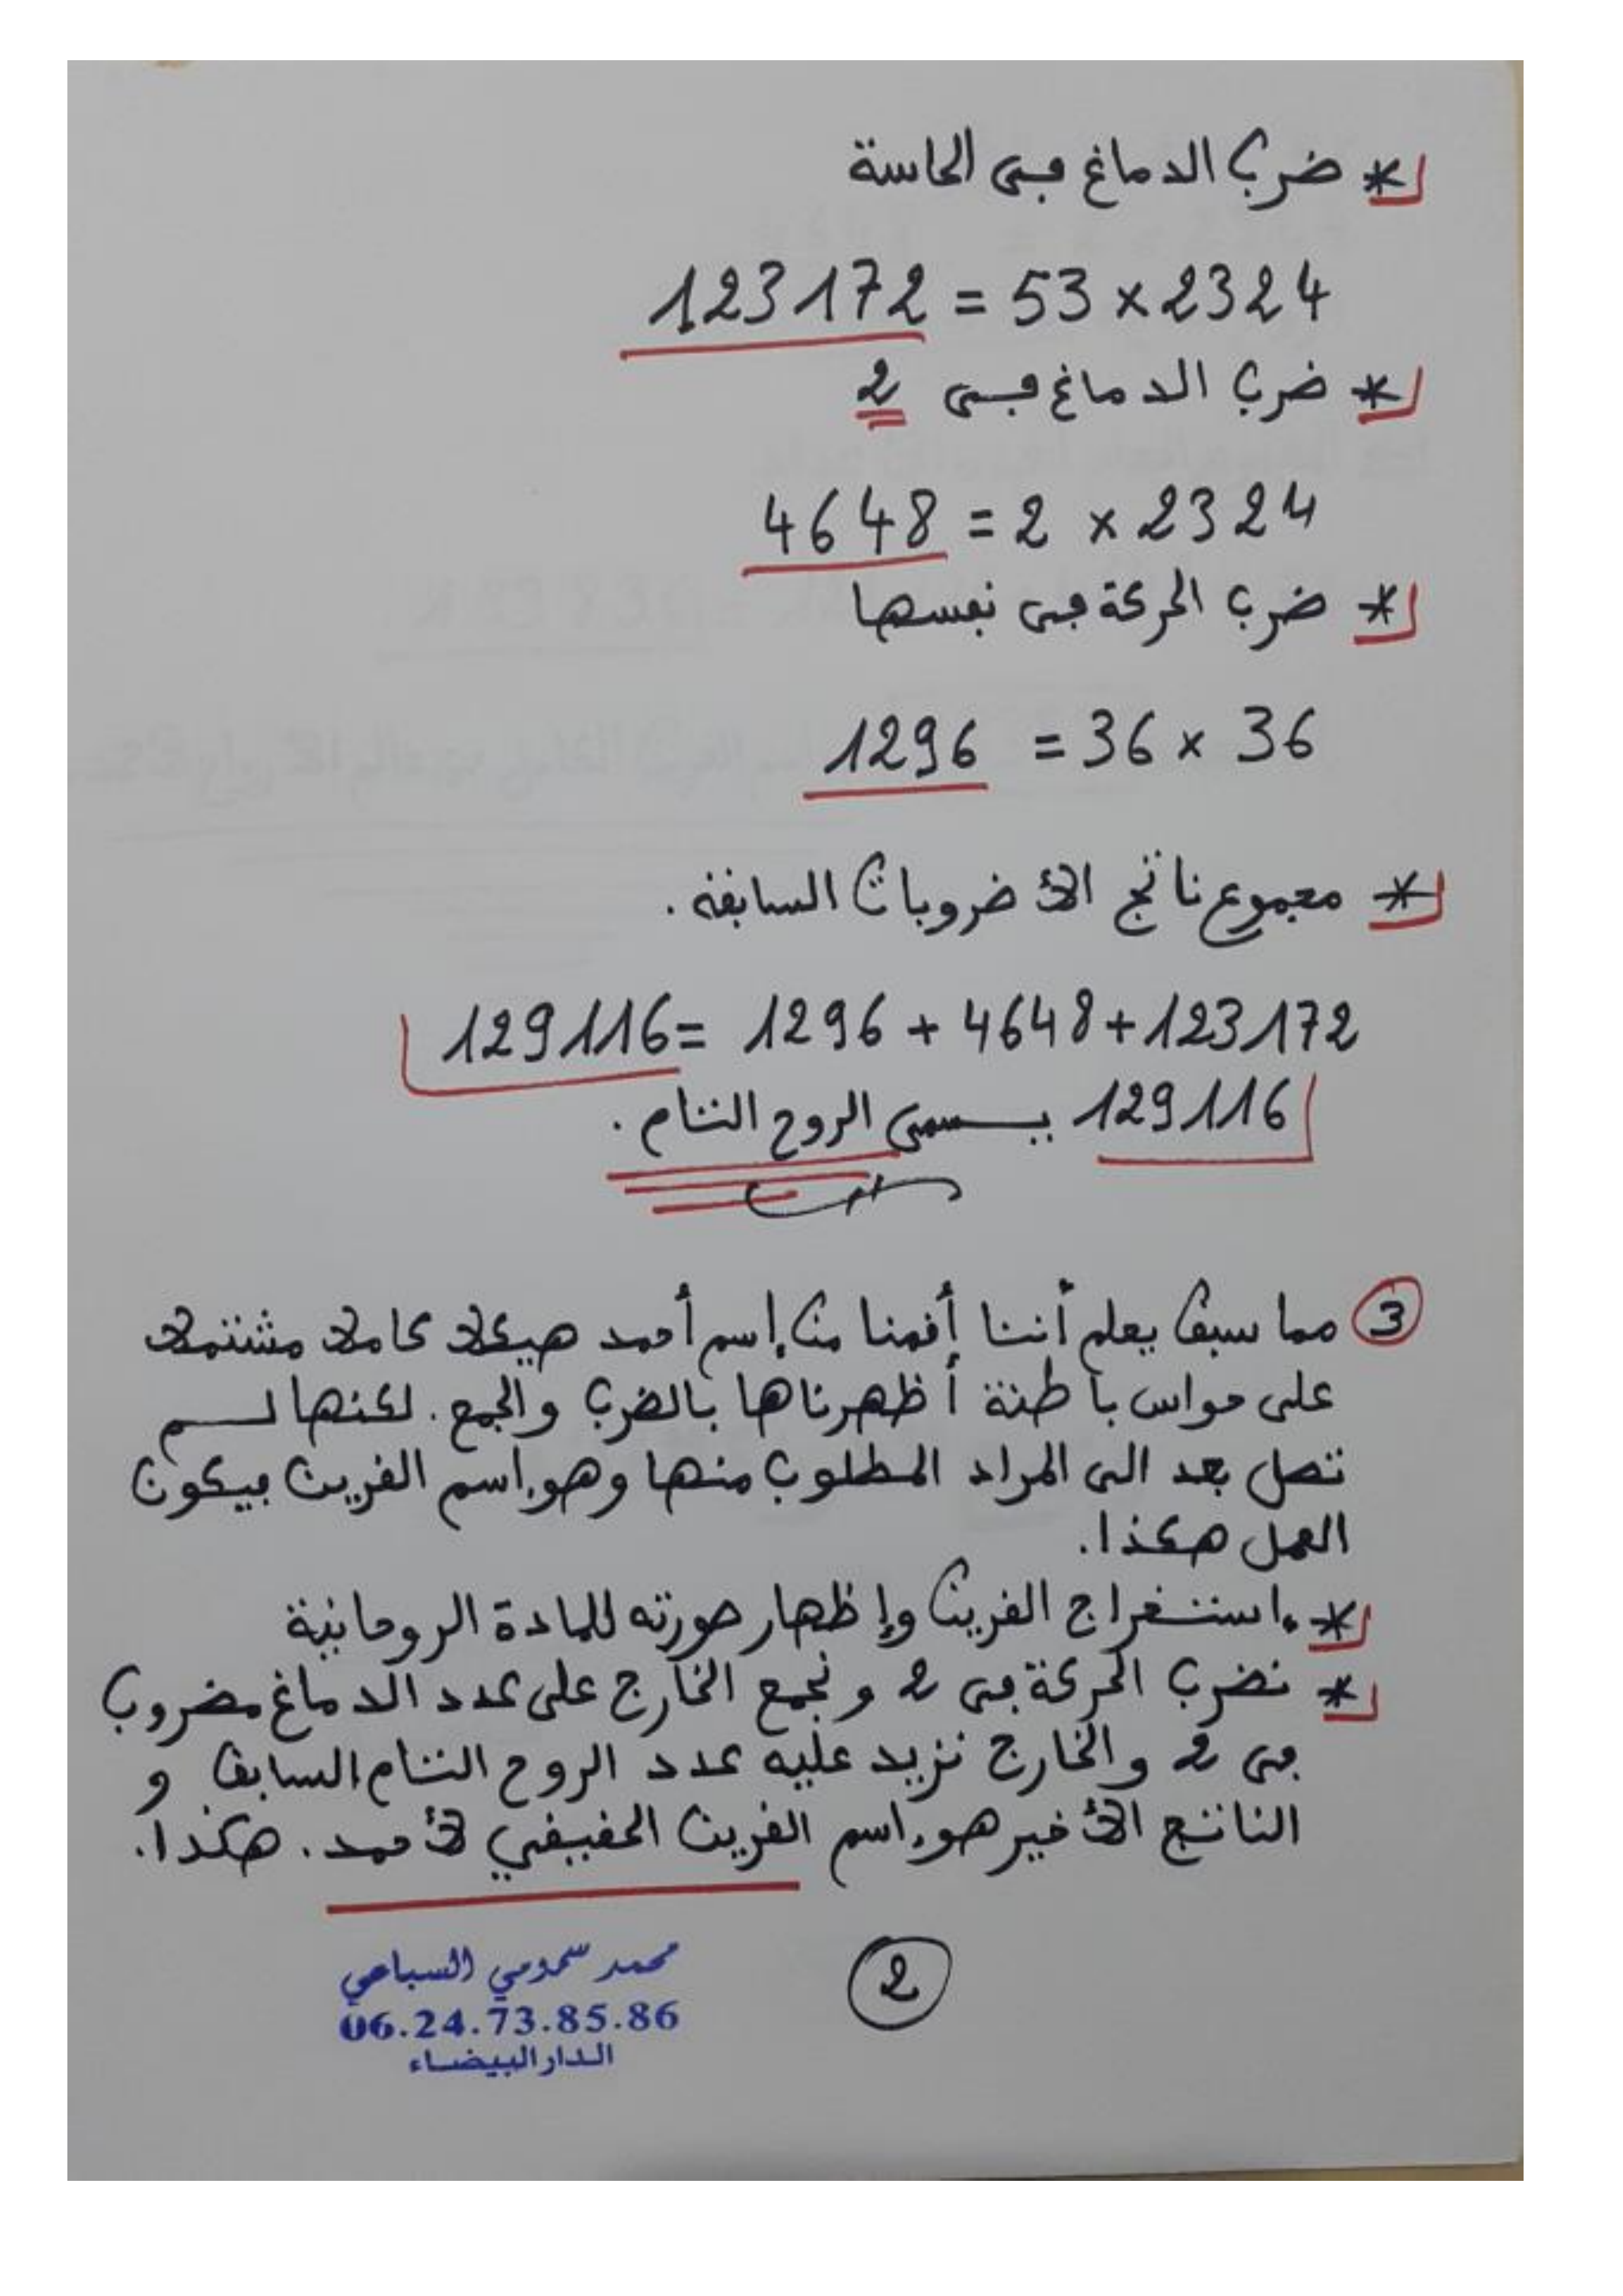 * ضرب الدماغ في الحاسة
123172 = 53 × 2324
* ضرب الدماغ في 2
4648 = 2 × 2324
* ضرب الحركة في نفسها
1296 = 36 × 36
* مجموع ناتج الأضروبات السابقة.
129116 = 1296 + 4648 + 123172
129116 يسمى الروح التام.
3 مما سبق يعلم أننا أقمنا من إسم أحمد هيكلا كاملا مشتملا
على حواس باطنة أظهرناها بالضرب والجمع. لكنها لم
تصل بعد الى المراد المطلوب منها وهو اسم القرين فيكون
العمل هكذا.
* استخراج القرين وإظهار صورته للمادة الروحانية
* نضرب الحركة في 2 ونجمع الخارج على عدد الدماغ مضروب
في 2 والخارج نزيد عليه عدد الروح التام السابق و
الناتج الأخير هو اسم القرين الحقيقي لأحمد. هكذا.
2
محمد سمومي السباعي
06.24.73.85.86
الدار البيضاء